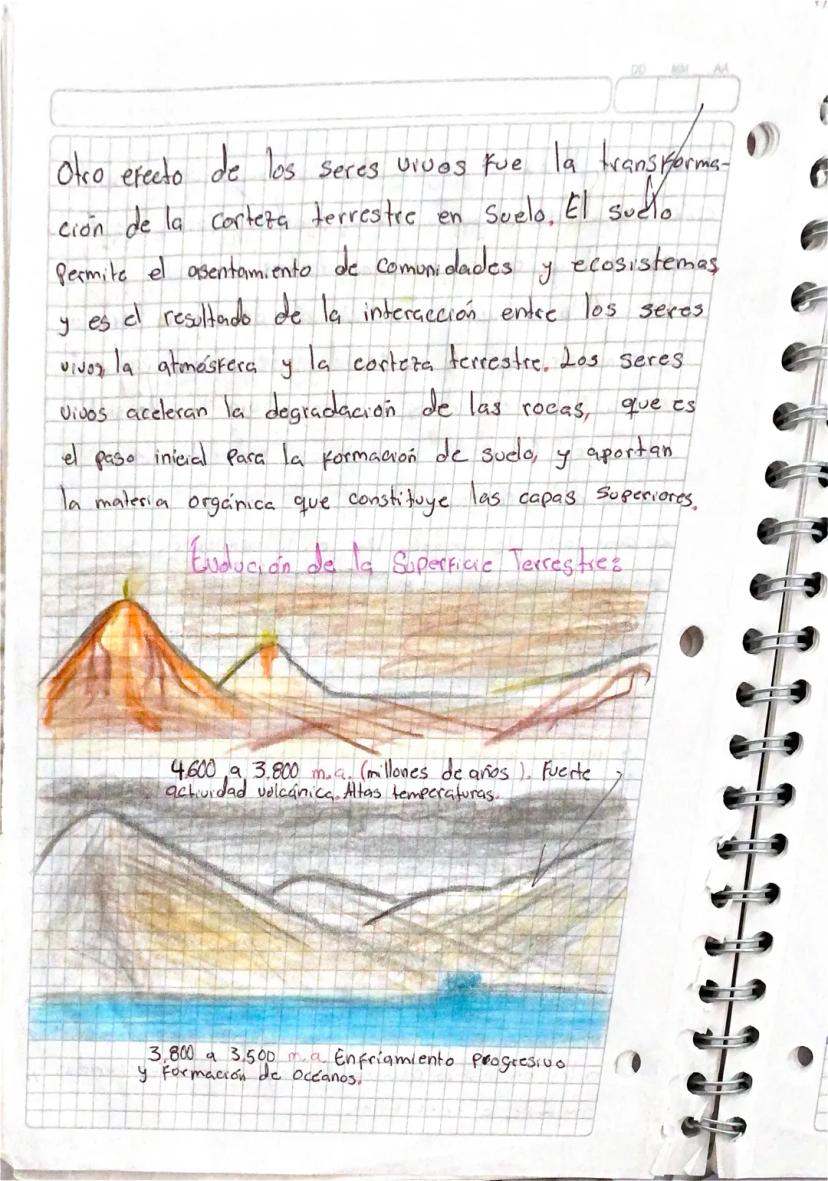 DD MM AA
Otro efecto de los seres vivos fue la transforma-
ción de la corteza terrestre en suelo. El suelo
Permite el asentamiento de comunidades y ecosistemas
y es el resultado de la interacción entre los seres
vivos la atmósfera y la corteza terrestre. Los seres
vivos aceleran la degradación de las rocas, que es
el paso inicial para la formación de suelo, y aportan
la materia orgánica que constituye las capas superiores.
Evolución de la Superficie Terrestre:
4.600 a 3.800 m.a. (millones de años). Fuerte
actividad volcánica. Altas temperaturas.
3.800 a 3.500 m.a Enfriamiento progresivo
y Formación de océanos.